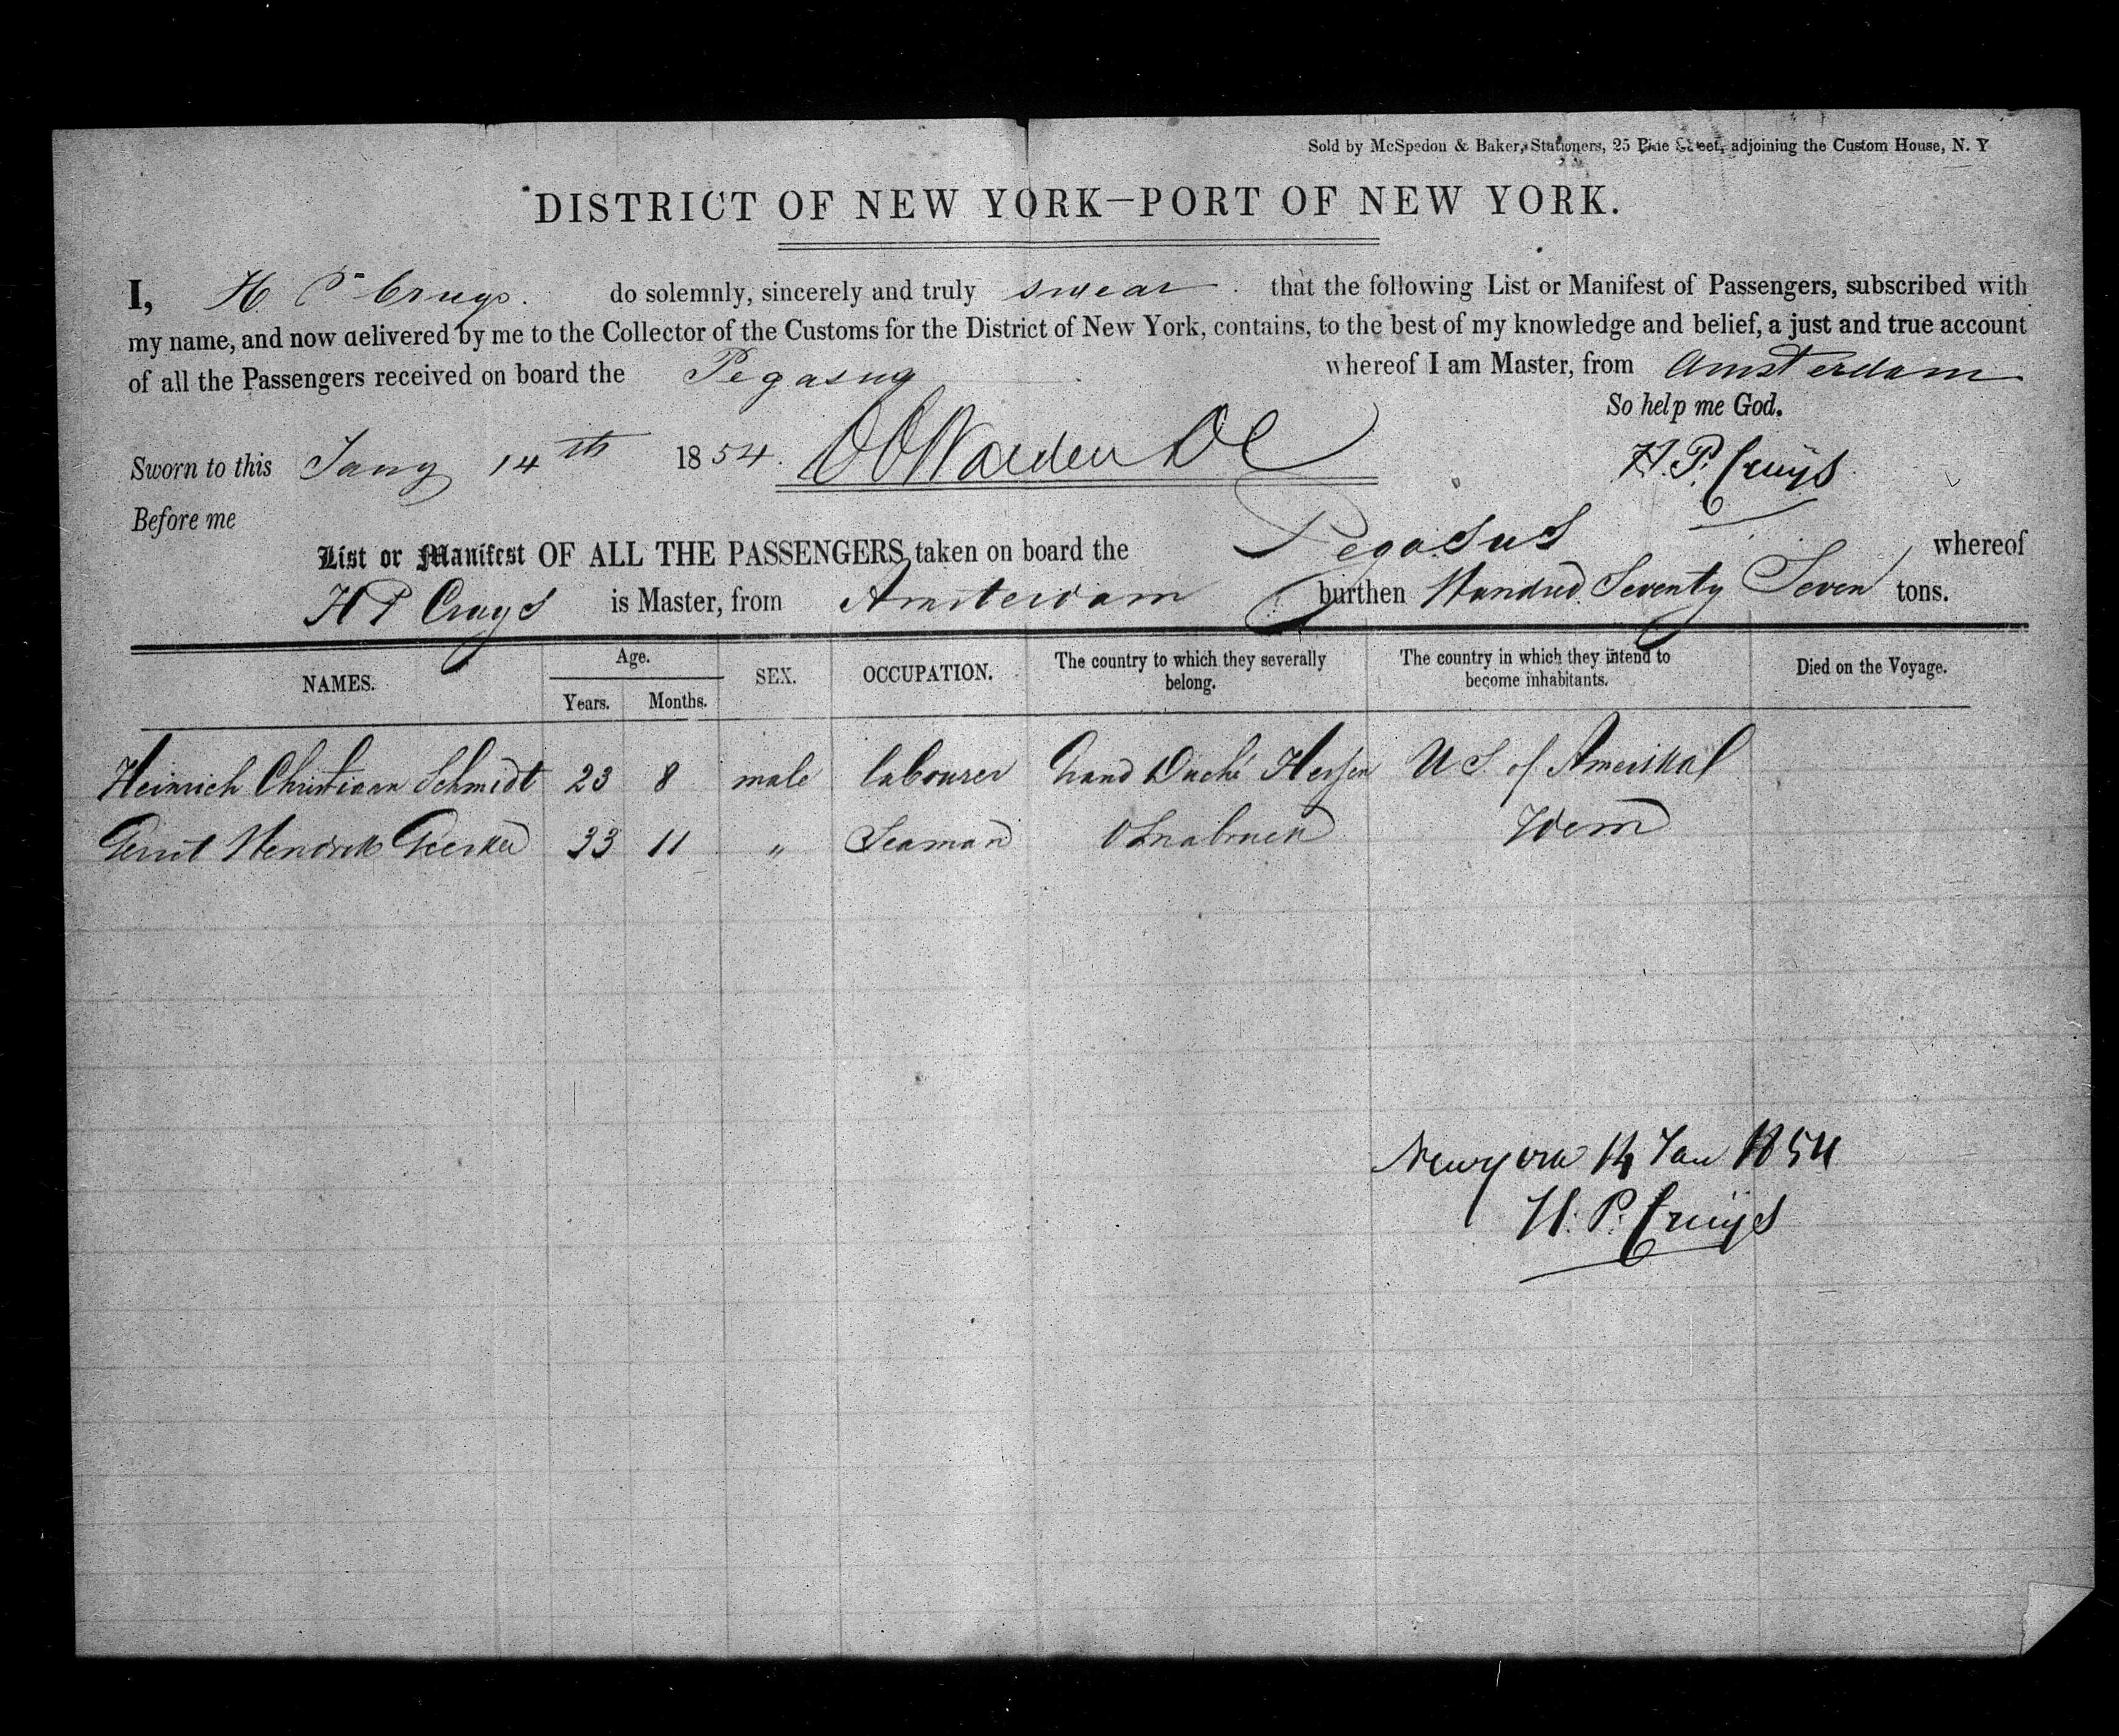 Sold by McSpedon & Baker, Stationers, 25 Pine Street, adjoining the Custom House, N. Y
DISTRICT OF NEW YORK—PORT OF NEW YORK.
I, H P Cruys. do solemnly, sincerely and truly swear that the following List or Manifest of Passengers, subscribed with
my name, and now delivered by me to the Collector of the Customs for the District of New York, contains, to the best of my knowledge and belief, a just and true account
of all the Passengers received on board the Pegasus whereof I am Master, from Amsterdam
So help me God.
Sworn to this Jany 14th 1854. H. P. Cruijs
Before me
List or Manifest OF ALL THE PASSENGERS taken on board the Pegasus whereof
H P Cruys is Master, from Amsterdam burthen Hundred Seventy Seven tons.
NAMES. Age. SEX. OCCUPATION. The country to which they severally belong. The country in which they intend to become inhabitants. Died on the Voyage.
Years. Months.
Heinrich Christiaan Schmidt 23 8 male labourer Grand Duché Hessen U S. of Amerika
Gerrit Hendrik 33 11 " Seaman Osnabruck Idem
Newyork 14 Jan 1854
H. P. Cruijs